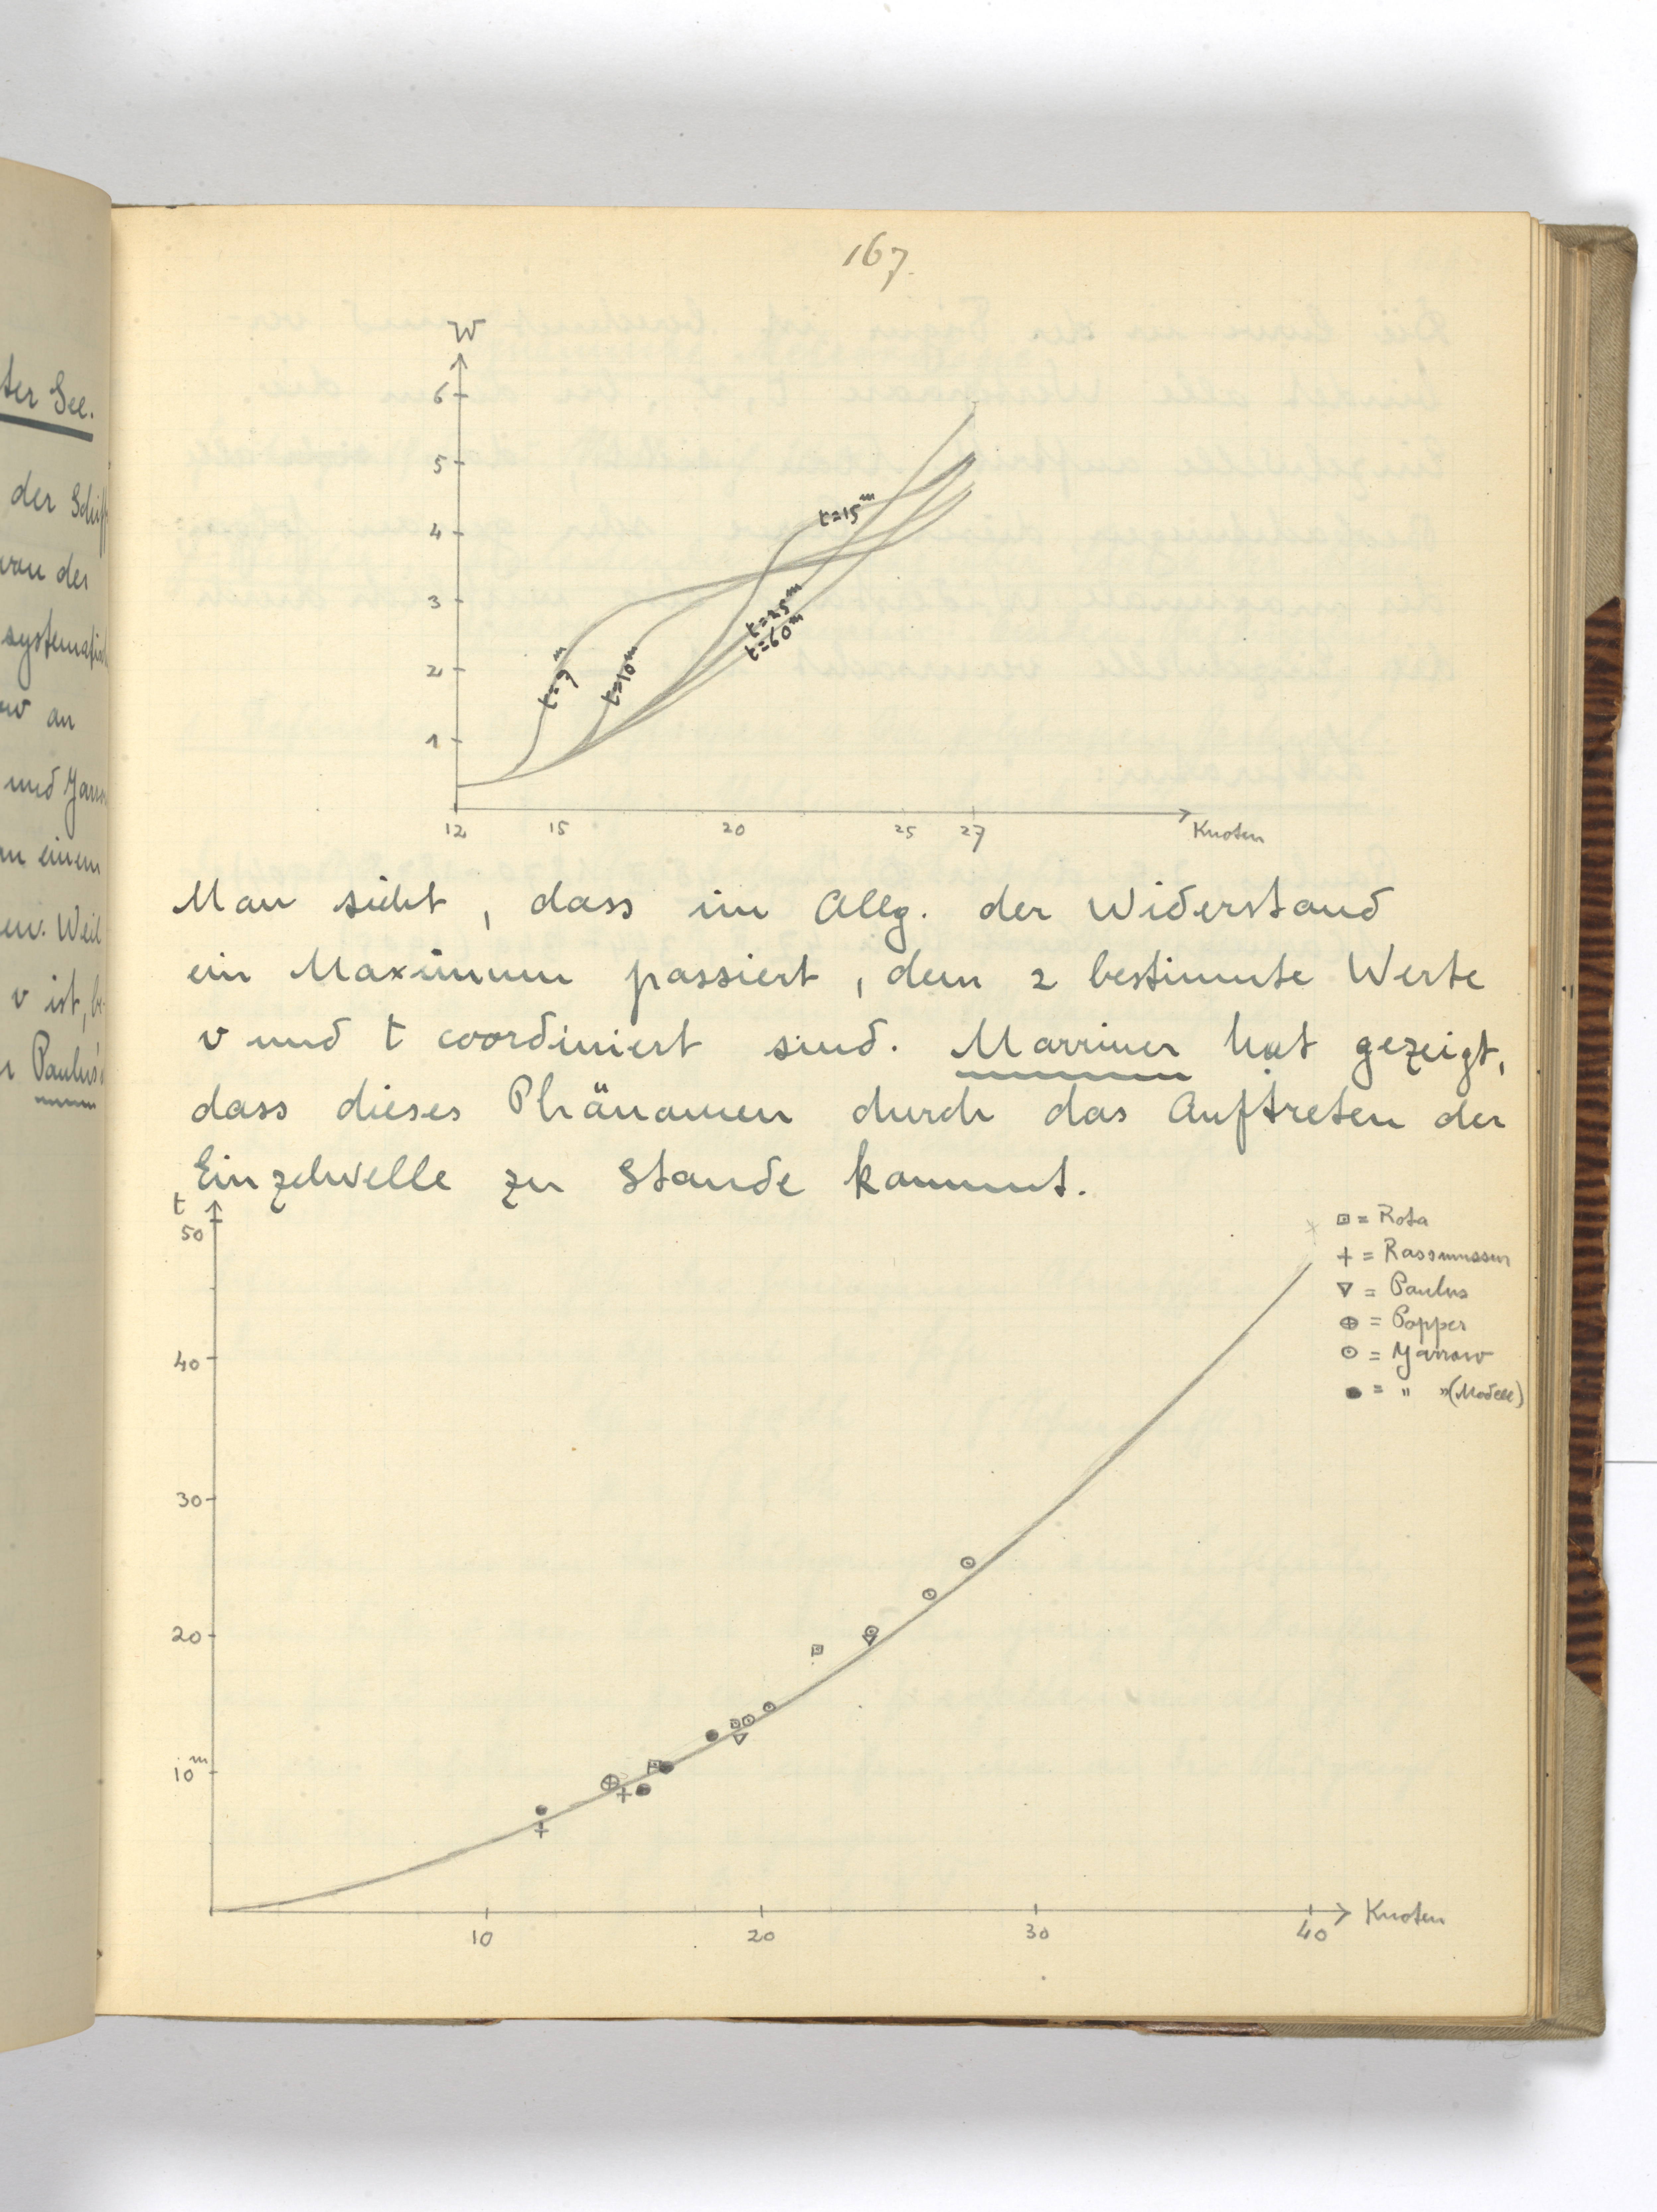 ter See.
der Schif
von der
systemati
an
und Yarro
einem
Weil
v ist, be-
Paulus
167.
W
6
5
4
3
2
1
t=15 m
t=25 m
t=60 m
t=9 m
t=10 m
12 15 20 25 27 Knoten
Man sieht, dass im Allg. der Widerstand
ein Maximum passiert, dem 2 bestimmte Werte
v und t coordiniert sind. Marriner hat gezeigt,
dass dieses Phänomen durch das Auftreten der
Einzelwelle zu Stande kommt.
t
50
40
30
20
10 m
= Rota
+ = Rassmussen
▽ = Paulus
⊕ = Popper
⊙ = Yarrow
● = " " (Modell)
10 20 30 40 Knoten